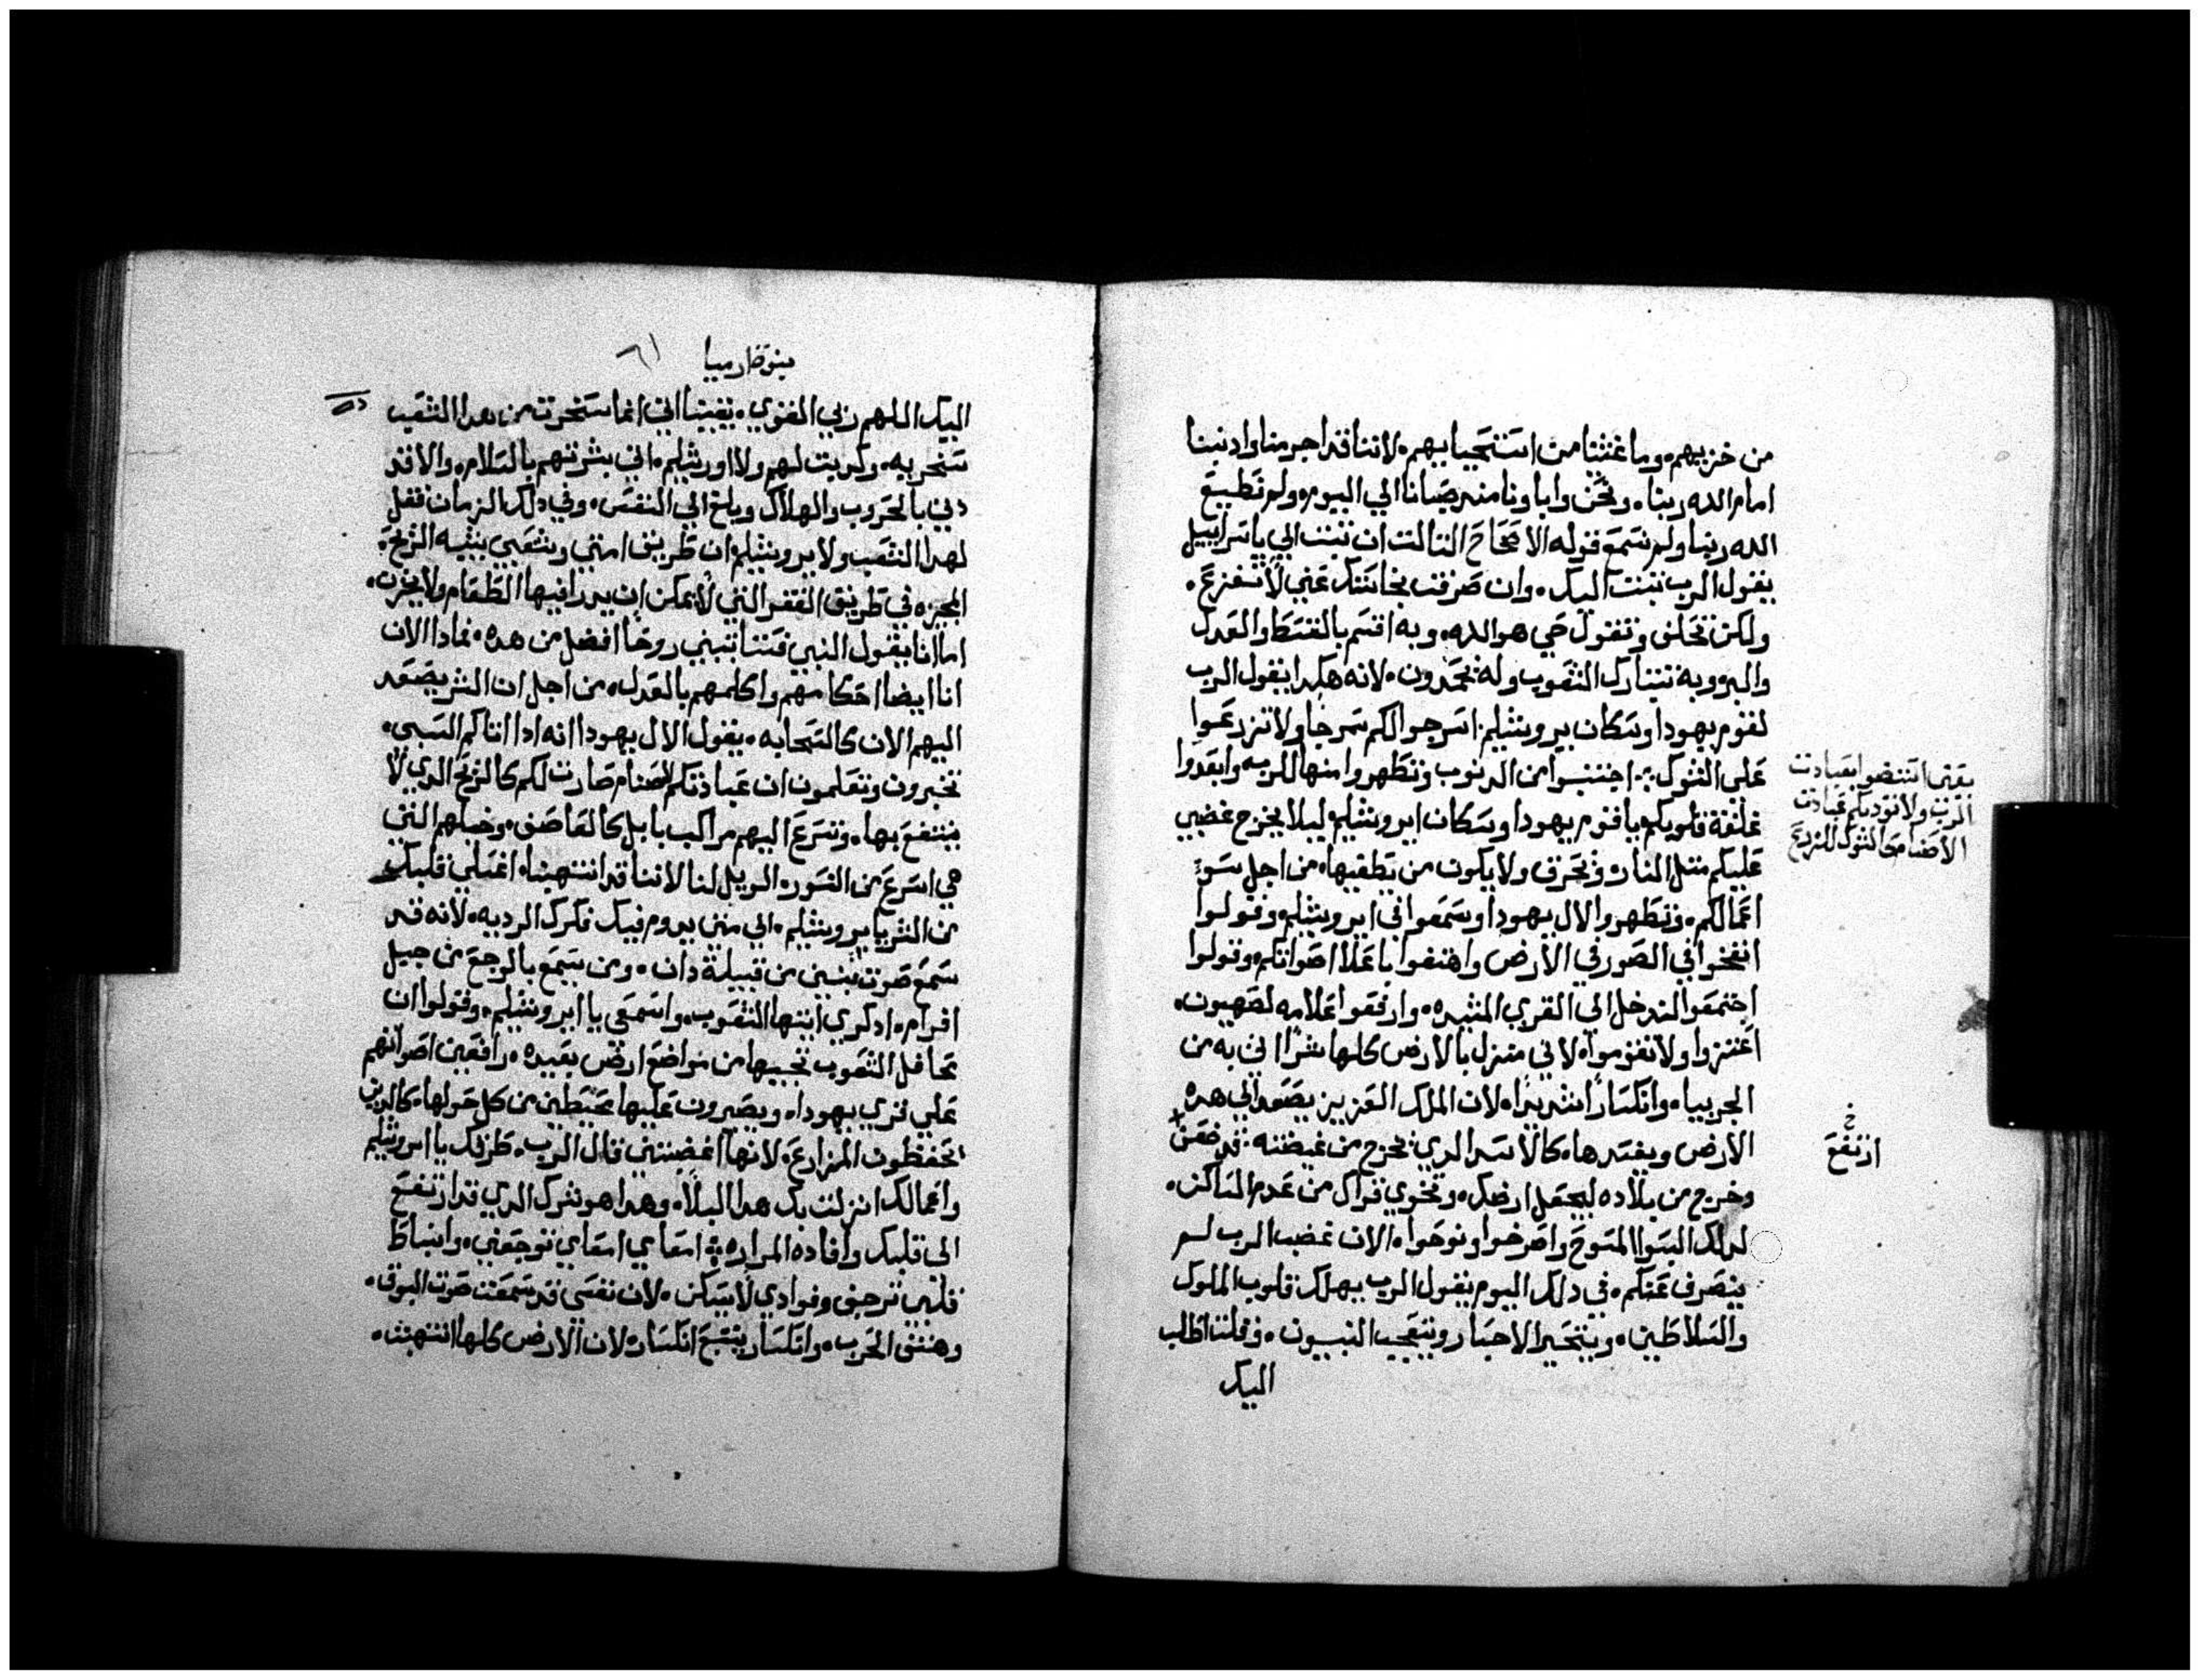 من خزيهم وما غشينا من استحيا بهم لاننا قد اجرمنا وادنبنا
امام الله ربنا ونحن وابا ونا مند صبانا الي اليوم ولم نطيع
الله ربنا ولم نسمع قوله الاصحاح التالت ان تبت الي ياسراييل
يقول الرب تبت اليك وان صرفت نجاستك عني لا تفزع
ولكن تحلف وتقول حي هو الله وبه اقسم بالقسط والعدل
والبر وبه تتبارك الشعوب وله يحمدون لانه هكدا يقول الرب
لقوم يهودا وسكان يروشليم اسرجوا لكم سرجا ولا تزرعوا
علي الشوك اجتنبوا من الدنوب وتطهروا منها للرب وابعدوا
غلفة قلوبكم يا قوم يهودا وسكان ايروشليم ليلا يخرج غضبي
عليكم متل النار وتحرق ولا يكون من يطفيها من اجل سو
اعمالكم وتطهروا لال يهودا وسمعوا في ايروشليم وقولوا
انفخوا في الصور في الارض واهتفوا باعلا اصواتكم وقولوا
اجتمعوا لندخل الي القري المشيده وارفعوا علامه لصهيون
اعتزوا ولا تقوموا لاني منزل بالارض كلها شرا اتي به من
الجربيا وانكسارا شديدا لان الملك العزيز يصعد الي هده
الارض ويفسدها كالاسد الدي يخرج من غيضته قد ضعن
وخرج من بلاده ليجعل ارضك وتخوي قراك من عدم الساكن
لدلك البسوا المسوح واصرخوا ونوحوا الان غضب الرب لم
ينصرف عنكم في دلك اليوم يقول الرب يهلك قلوب الملوك
والسلاطين ويتحير الاحبار ويتعجب النبيون وقلت اطلب
اليك
يعني اتنضوا بعبادت
الرب ولا نوديكم عبادت
الاصنام كالشوك للزرع
خ
ارتفع
بنوة ارميا
اليك اللهم ربي القوي يقينا اني انما سخرت من هدا الشعب
سخريه وكديت لهم ولا اورشليم اني بشرتهم بالسلام والا قد
دني بالحروب والهلاك وبلغ الي النفس وفي دلك الزمان فقل
لهدا الشعب ولايروشليم ان طريق امتي وشعبي يشبه الريح
المجيزه في طريق القفر التي لا يمكن ان يدرا فيها الطعام ولا يخزن
اما انا يقول النبي فستاتيني روحا افضل من هده فمادا الان
انا ايضا احكامهم واكلمهم بالعدل من اجل ان الشر يصعد
اليهم الان كالسحابه يقول لال يهودا انه ادا اتاكم السبي
تخبرون وتعلمون ان عبادتكم لاصنام صارت لكم كالريح الدي لا
ينتفع بها وتسرع اليهم مراكب بابل كالعاصف وخيلهم التي
هي اسرع من النسور الويل لنا لاننا قد انتهبنا اغسلي قلبك
من الشر يا يروشليم الي متي يدوم فيك فكرك الرديه لانه قد
سمع صوت تبين من قبيلة دان ومن يسمع بالرجع من جبل
افرام ادكري ايتها الشعوب واسمعي يا ايروشليم وقولوا ان
محافل الشعوب تجيها من مواضع ارض بعيده رافعين اصواتهم
علي قري يهودا ويصيرون عليها محيطين من كل حولها كالدين
يحفظون المزارع لانها اغضبتني قال الرب طرقك يا ايروشليم
واعمالك انزلت بك هدا البلا وهدا هو شرك الدي قد ارتفع
الي قلبك وافاده المراره امعاي امعاي توجعني وانبساط
قلبي ترجف وفوادي لا يسكن لان نفسي قد سمعت صوت البوق
وهتف الحرب وانكسار يتبع انكسار لان الارض كلها انتهبت